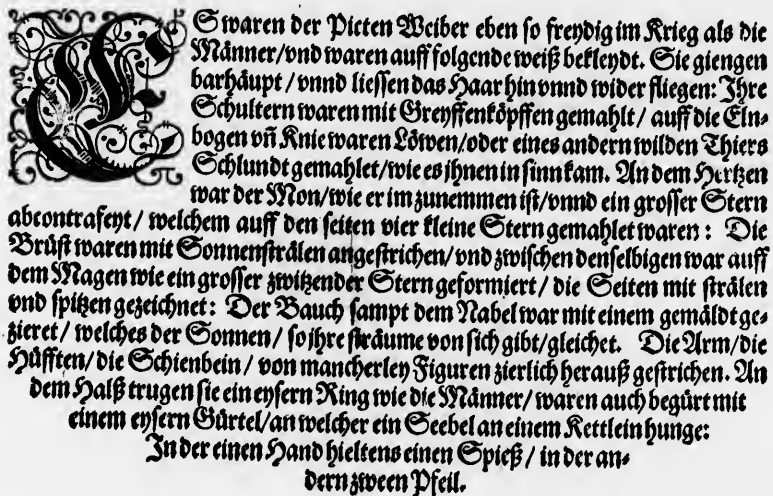 ES waren der Picten Weiber eben so freydig im Krieg als die
Männer/vnd waren auff folgende weiß bekleydt. Sie giengen
barhäupt / vnnd liessen das Haar hin vnnd wider fliegen: Ihre
Schultern waren mit Greyffenköpffen gemahlt / auff die Eln⸗
bogen vñ Knie waren Löwen/oder eines andern wilden Thiers
Schlundt gemahlet/wie es jhnen in sinn kam. An dem Hertzen
war der Mon/wie er im zunemmen ist/vnnd ein grosser Stern
abcontrafeyt / welchem auff den seiten vier kleine Stern gemahlet waren : Die
Brüst waren mit Sonnenstrålen angestrichen/vnd zwischen denselbigen war auff
dem Magen wie ein grosser zwitzender Stern geformiert / die Seiten mit strålen
vnd spitzen gezeichnet: Der Bauch sampt dem Nabel war mit einem gemäldt ge⸗
zieret / welches der Sonnen / so jhre sträume von sich gibt/gleichet. Die Arm/die
Hüfften/die Schienbein / von mancherley Figuren zierlich herauß gestrichen. An
dem Halß trugen sie ein eysern Ring wie die Männer/ waren auch begürt mit
einem eysern Gürtel/an welcher ein Seebel an einem Kettlein hunge:
In der einen Hand hieltens einen Spieß / in der an⸗
dern zween Pfeil.